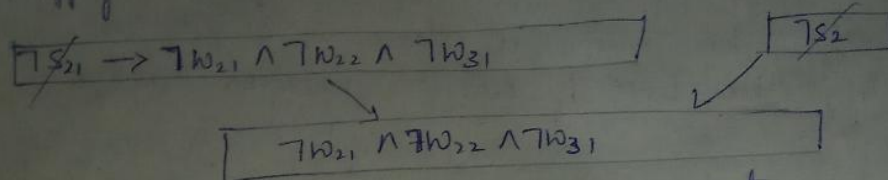 ¬S₂₁ → ¬W₂₁ ∧ ¬W₂₂ ∧ ¬W₃₁
¬S₂
¬W₂₁ ∧ ¬W₂₂ ∧ ¬W₃₁